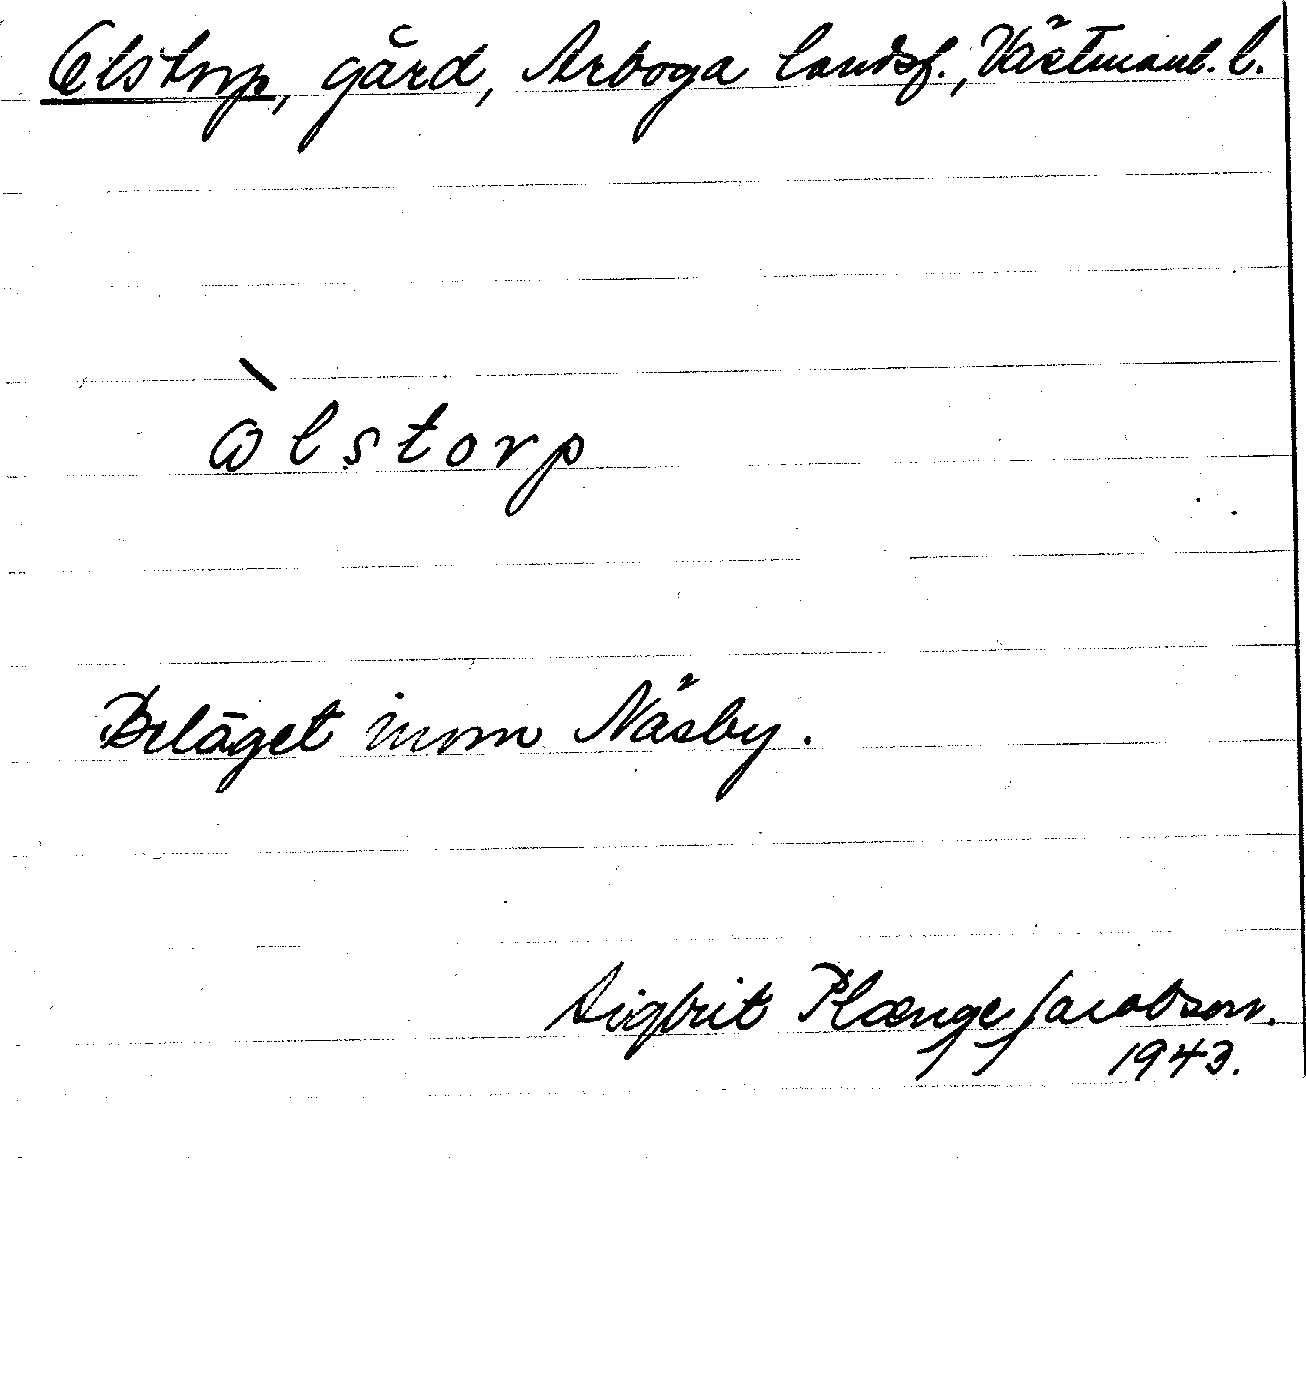 Elstorp, gård, Arboga landsf., Västmanl. l.
ò̀lstorp
Beläget inom Näsby.
Sigbrit Plænge Jacobson.
1943.